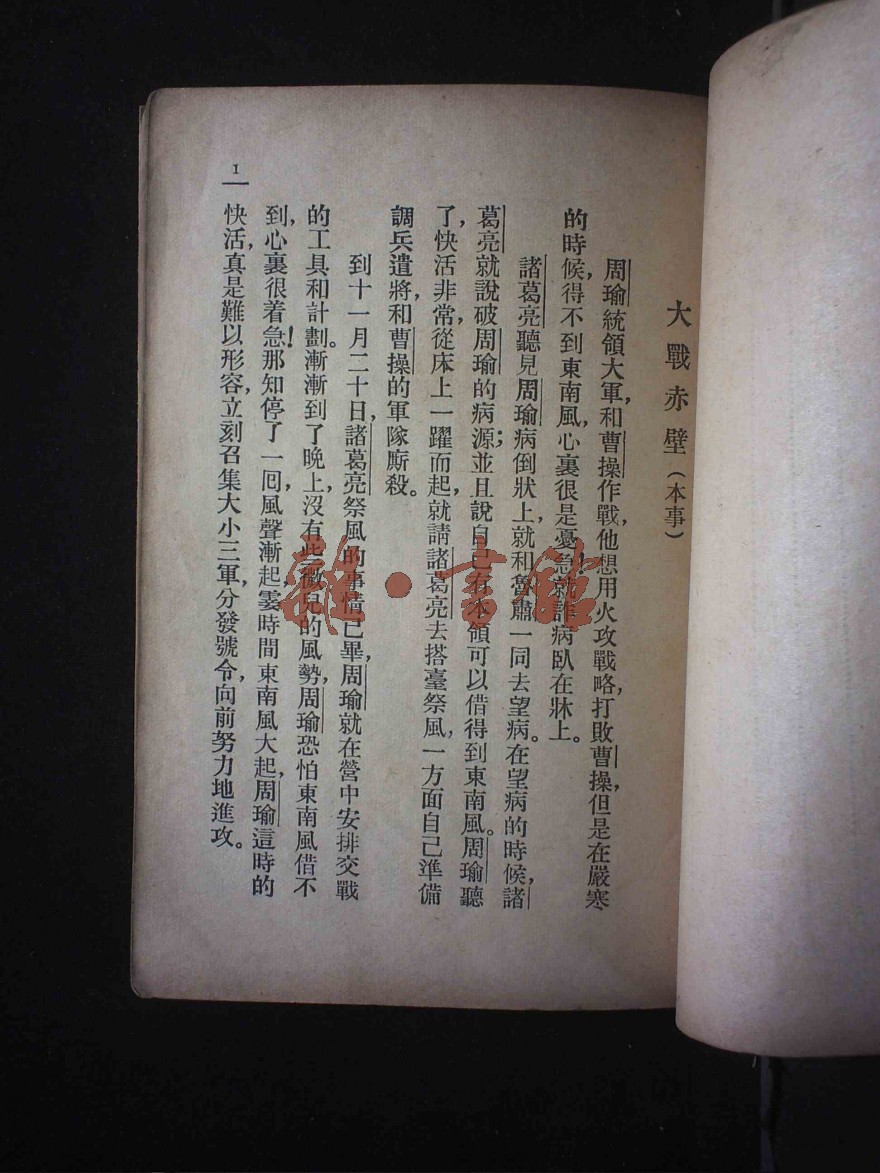 大戰赤壁(本事)
周瑜統領大軍,和曹操作戰,他想用火攻戰略,打敗曹操,但是在嚴寒
的時候,得不到東南風,心裏很是憂急!就詐病臥在牀上。
諸葛亮聽見周瑜病倒牀上,就和魯肅一同去望病。在望病的時候,諸
葛亮就說破周瑜的病源;並且說自己有本領可以借得到東南風。周瑜聽
了,快活非常,從床上一躍而起,就請諸葛亮去搭臺祭風,一方面自己準備
調兵遣將,和曹操的軍隊廝殺。
到十一月二十日,諸葛亮祭風的事情已畢,周瑜就在營中安排交戰
的工具和計劃。漸漸到了晚上,沒有些微兒的風勢,周瑜恐怕東南風借不
到,心裏很着急!那知停了一囘,風聲漸起,霎時間東南風大起,周瑜這時的
快活,真是難以形容,立刻召集大小三軍,分發號令,向前努力地進攻。
1
雜·書館